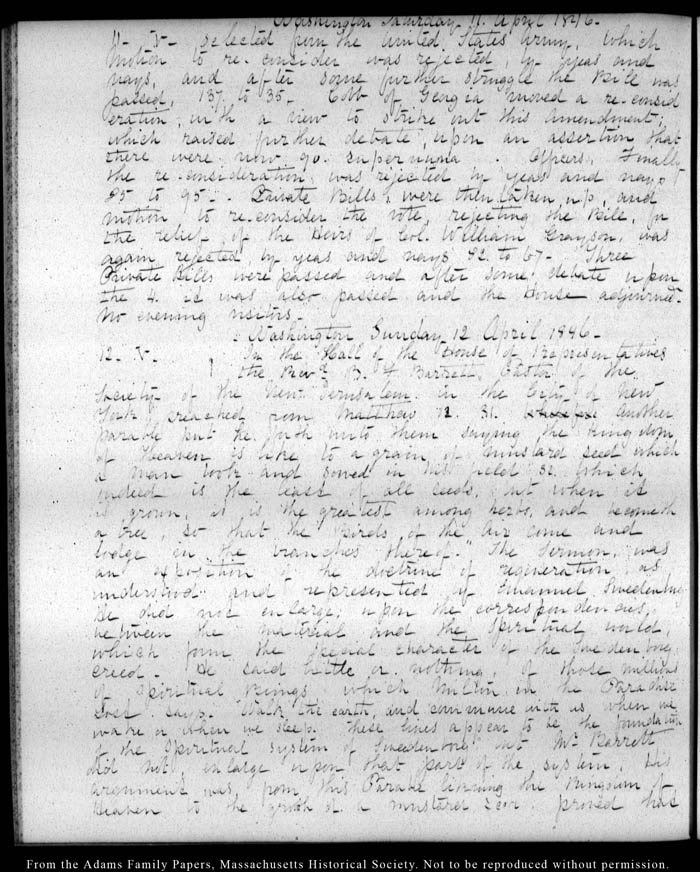 Washington Saturday 11. April 1846-
11- V- selected from the United States Army, which
motion to re-consider was rejected, by yeas and
nays, and after some further struggle the Bill was
passed, 137 to 35- Cobb of Georgia moved a re-consid
eration, with a view to strike out this amendment;
which raised further debate, upon an assertion that
there were now 90. supernumia . Officers, Finally
the re-consideration was rejected by yeas and nays
85 to 95-. Private Bills, were then taken up, and
motion to re-consider the vote, rejecting the Bill, for
the relief of the Heirs of Col. William Grayson, was
again rejected, by yeas and nays 92. to 67- Three
Private Bills were passed and after some debate upon
the 4. it was also passed and the House adjourned-
No evening visitors-
Washington Sunday 12 April 1846-
12- V- In the Hall of the House of Representatives
the Revd. B. F Barrett, Pastor of the
Society of the New Jerusalem in the City of New
York preached from Matthew 31. another
parable put he forth unto them saying, the kingdom
of Heaven is like to a grain of mustard seed which
a man took and sowed in his field 32. which
indeed is the least of all seeds, but when it
is grown, it is the greatest among herbs, and becometh
a tree, so that the birds of the Air come and
lodge in the branches thereof." The Sermon, was
an exposition of the doctrine of regeneration as
understood and represented by Emanuel Swedenborg
He did not enlarge upon the correspondencies,
between the material and the Spiritual world,
which form the special character of the Swedenborg
creed. He said little or nothing, of those millions
of Spiritual Beings which Milton in the Paradise
Lost says- Walk the earth, and commune with us, when we
wake or when we sleep. These lines appear to be the foundation
of the Spiritual system of Swedenborg but Mr Barrett
did not enlarge upon that part of the system. His
argument was, from this Parable likening the Kingdom of
Heaven to the growth of a mustard proved that
From the Adams Family Papers, Massachusetts Historical Society. Not to be reproduced without permission.